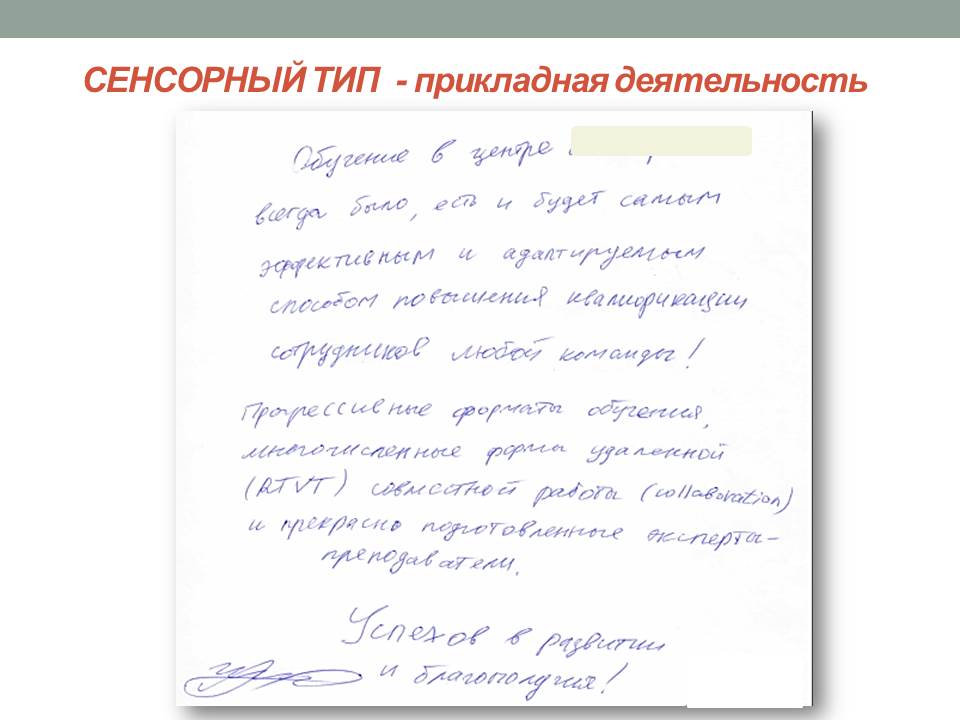 СЕНСОРНЫЙ ТИП - прикладная деятельность
Обучение в центре
всегда было, есть и будет самым
эффективным и адаптируемым
способом повышения квалификации
сотрудников любой команды!
Прогрессивные форматы обучения,
многочисленные формы удаленной
(RTVT) совместной работы (collaboration)
и прекрасно подготовленные эксперты-
преподаватели.
Успехов в развитии
и благополучия!